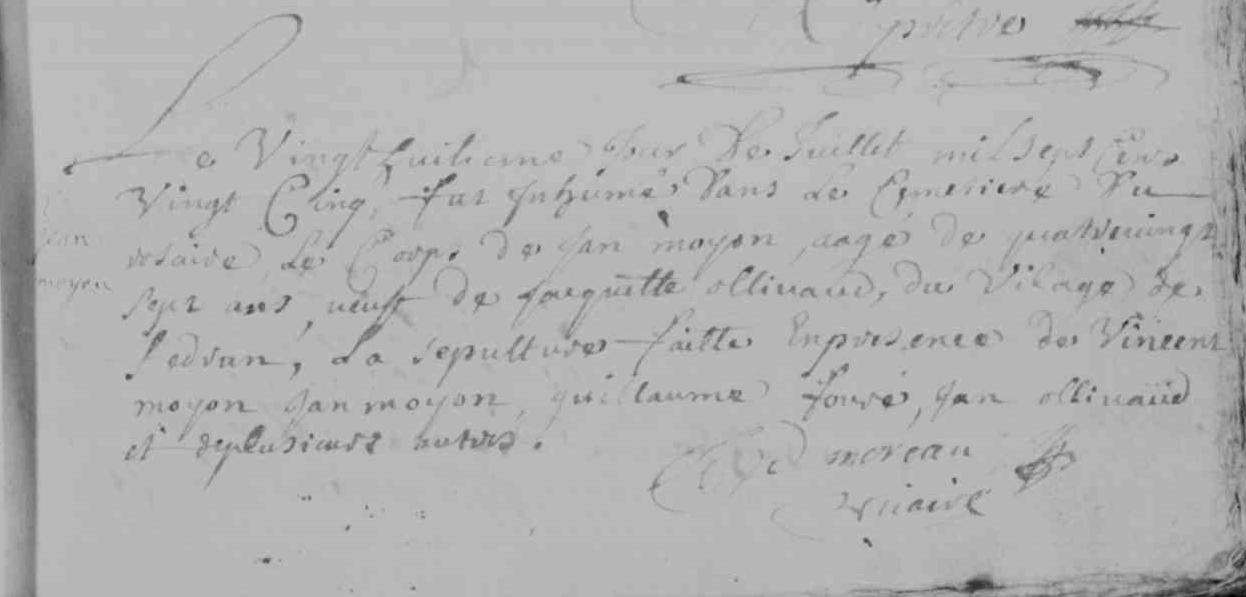 prêtre
Le Vingt huitieme jour De Juillet mil sept Cens
Vingt Cinq, fut Inhumé Dans Le Cymetiere Du
Jean
vicaire, Le Corps de Jan moyon, aagé de quatrevingt
moyon
sept ans, veuf de Jacquette ollivaud, du Vilage de
La sepulture faitte Enpresence de Vincent
moyon Jan moyon, guillaume fouré, Jan ollivaud
et deplusieurs autres.
moreau
vicaire